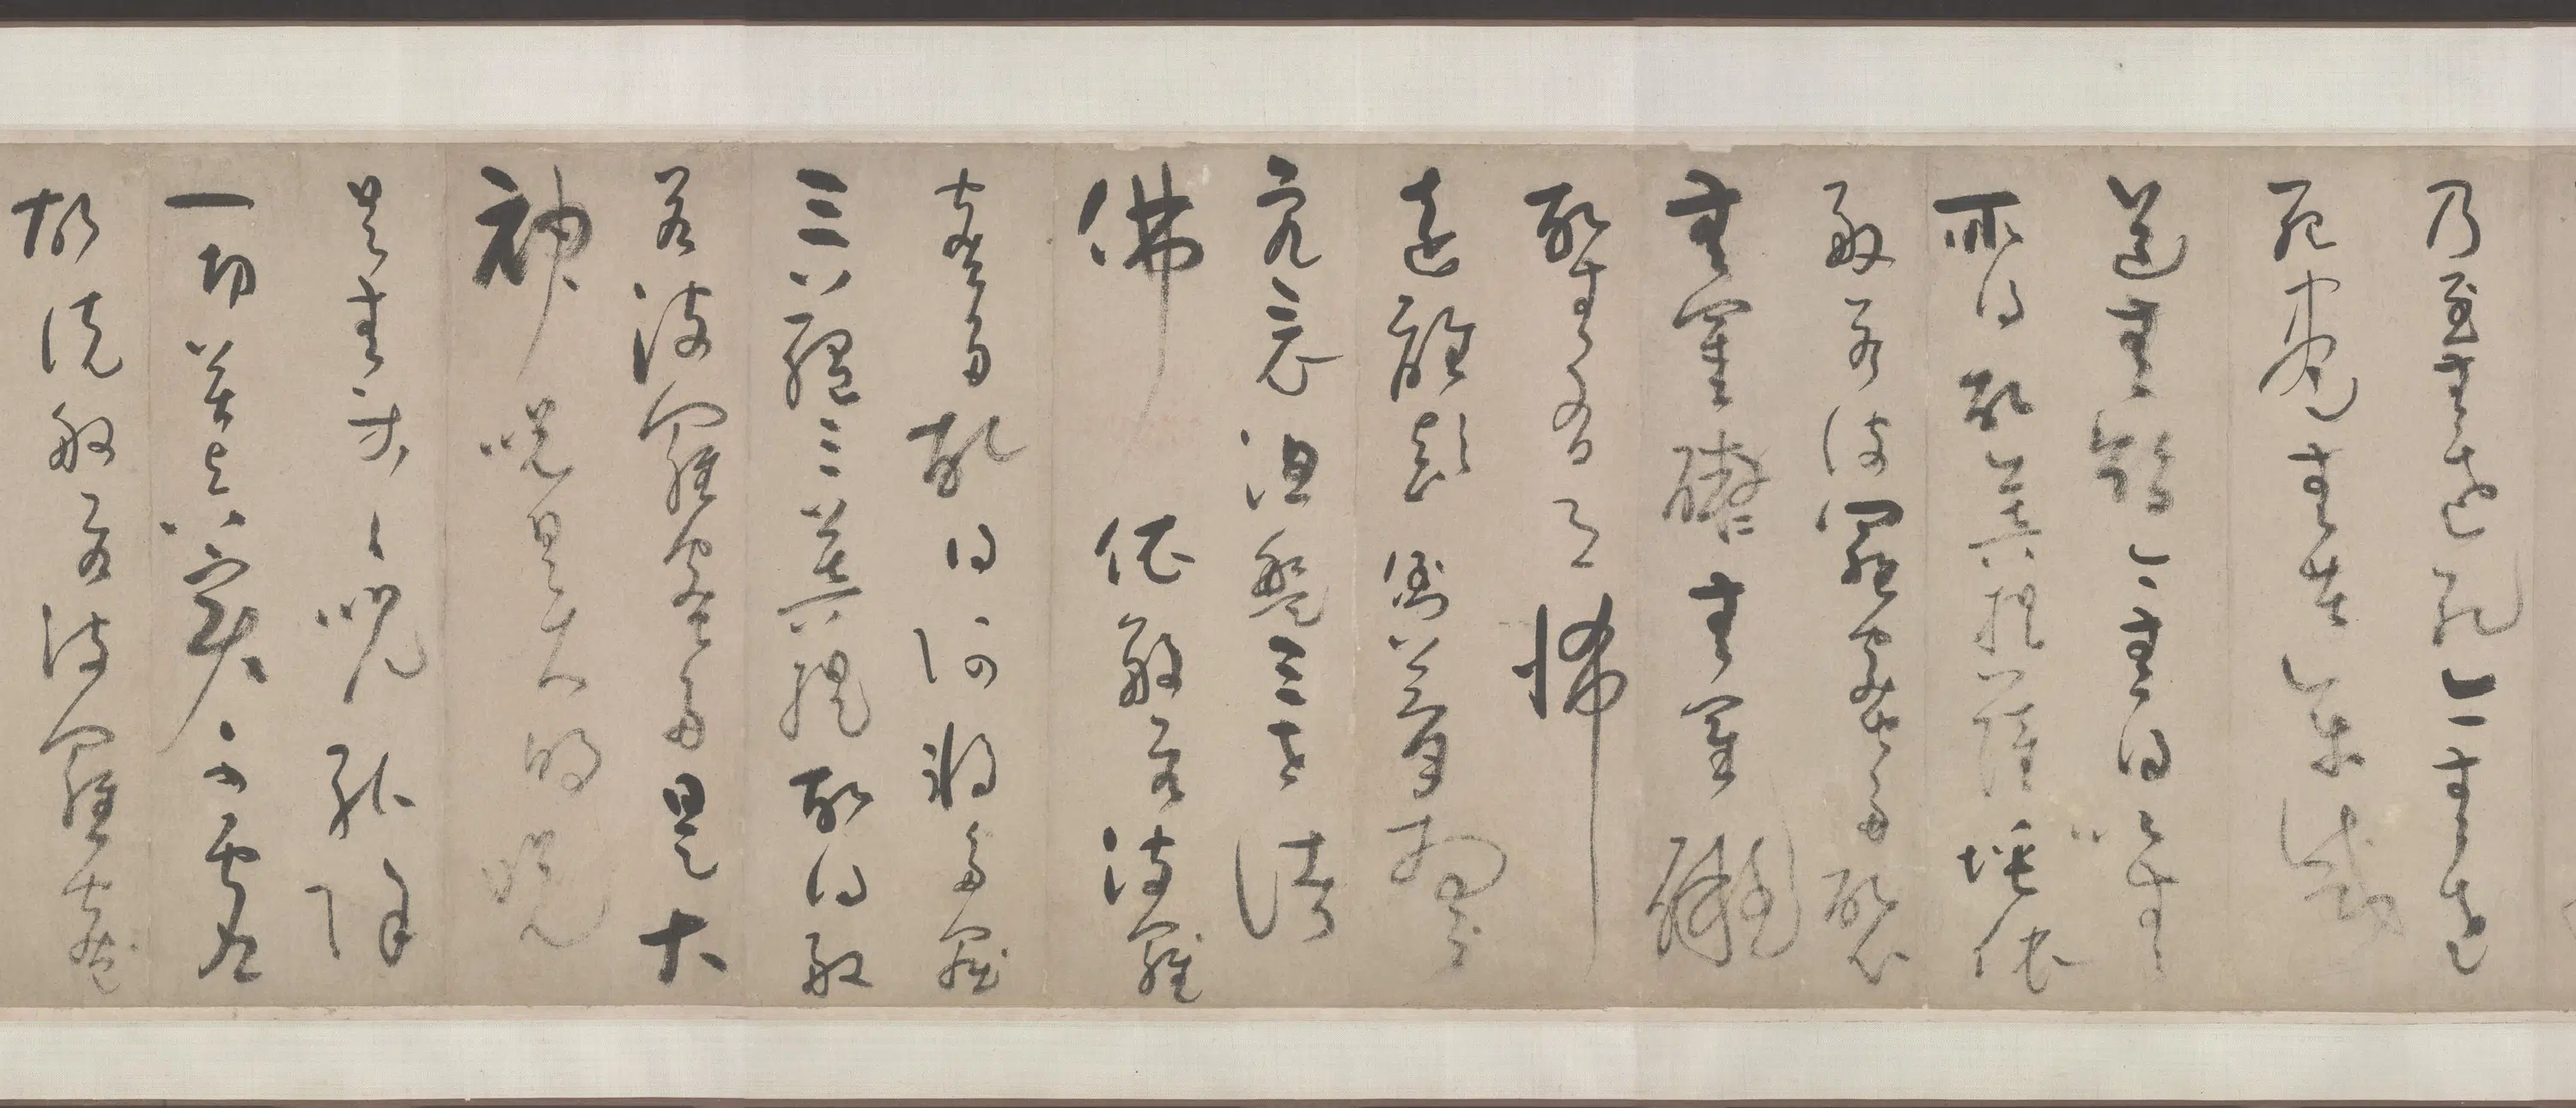 乃至無老死亦無老
死盡無苦集滅
道無智亦無得以無
所得故菩提薩埵依
般若波羅蜜多故心
無罣礙無罣礙
故無有恐怖
遠離顛倒夢想
究竟涅槃三世諸
佛依般若波羅
蜜多故得阿耨多羅
三藐三菩提故知般
若波羅蜜多是大
神咒是大明咒
是無等等咒能除
一切苦真實不虛
故說般若波羅蜜